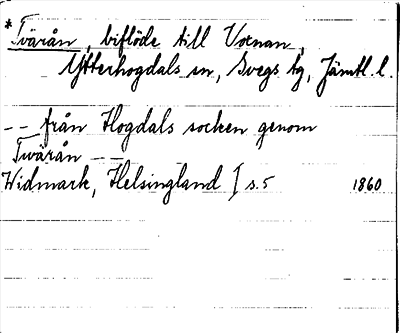 *Tvärån, biflöde till Voxnan,
Ytterhogdals sn, Svegs tg, Jämtl. l.
-- från Hogdals socken genom
Twärån --
Widmark, Helsingland I s. 5 1860